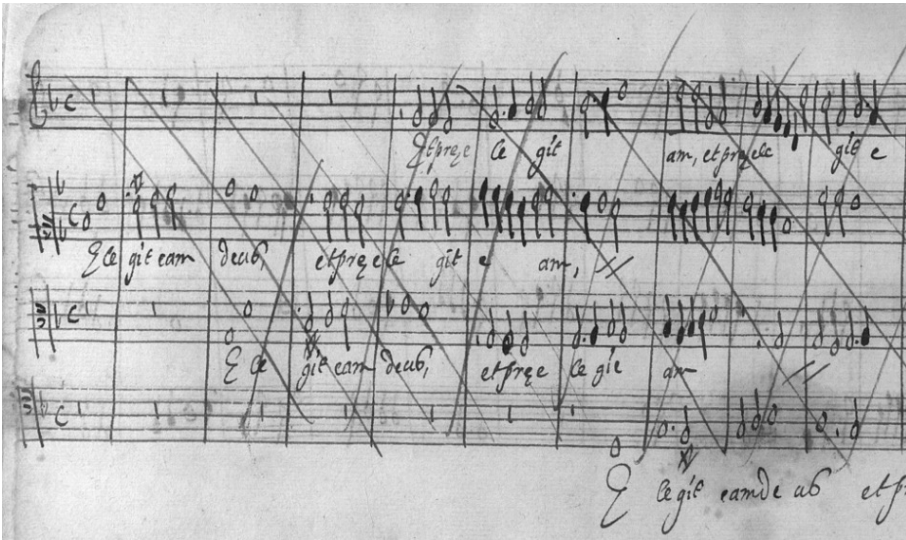 Et pręe le git am, et pręele git e
Ele git eam deus, et pręele git e am,
E le git eam deus, et pręe le git am
E le git eam de us et p